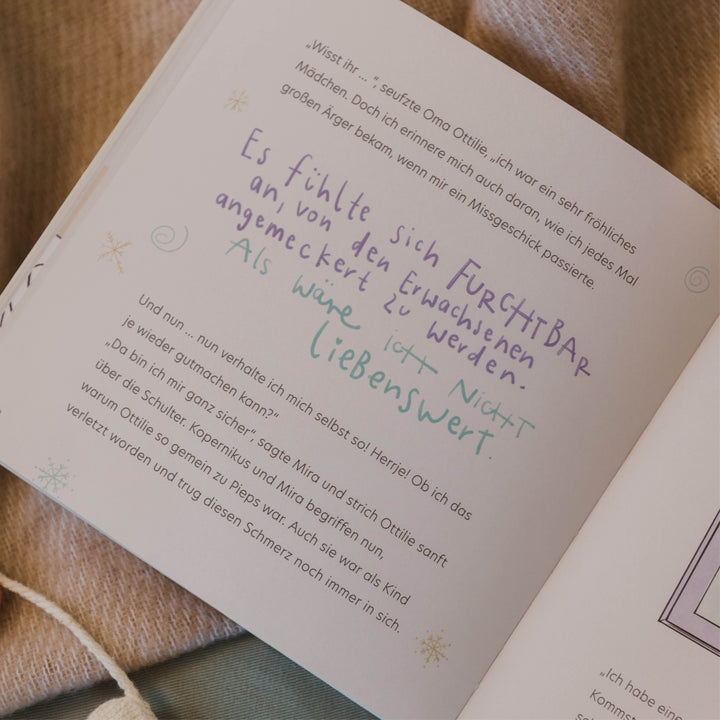 „Wisst ihr ... “, seufzte Oma Ottilie, „ich war ein sehr fröhliches
Mädchen. Doch ich erinnere mich auch daran, wie ich jedes Mal
großen Ärger bekam, wenn mir ein Missgeschick passierte.
Es fühlte sich FURCHTBAR
an, von den Erwachsenen
angemeckert zu werden.
Als wäre ich NICHT
LIEBENSWERT.
Und nun ... nun verhalte ich mich selbst so! Herrje! Ob ich das
je wieder gutmachen kann?“
„Da bin ich mir ganz sicher“, sagte Mira und strich Ottilie sanft
über die Schulter. Kopernikus und Mira begriffen nun,
warum Ottilie so gemein zu Pieps war. Auch sie war als Kind
verletzt worden und trug diesen Schmerz noch immer in sich.
„Ich habe eine